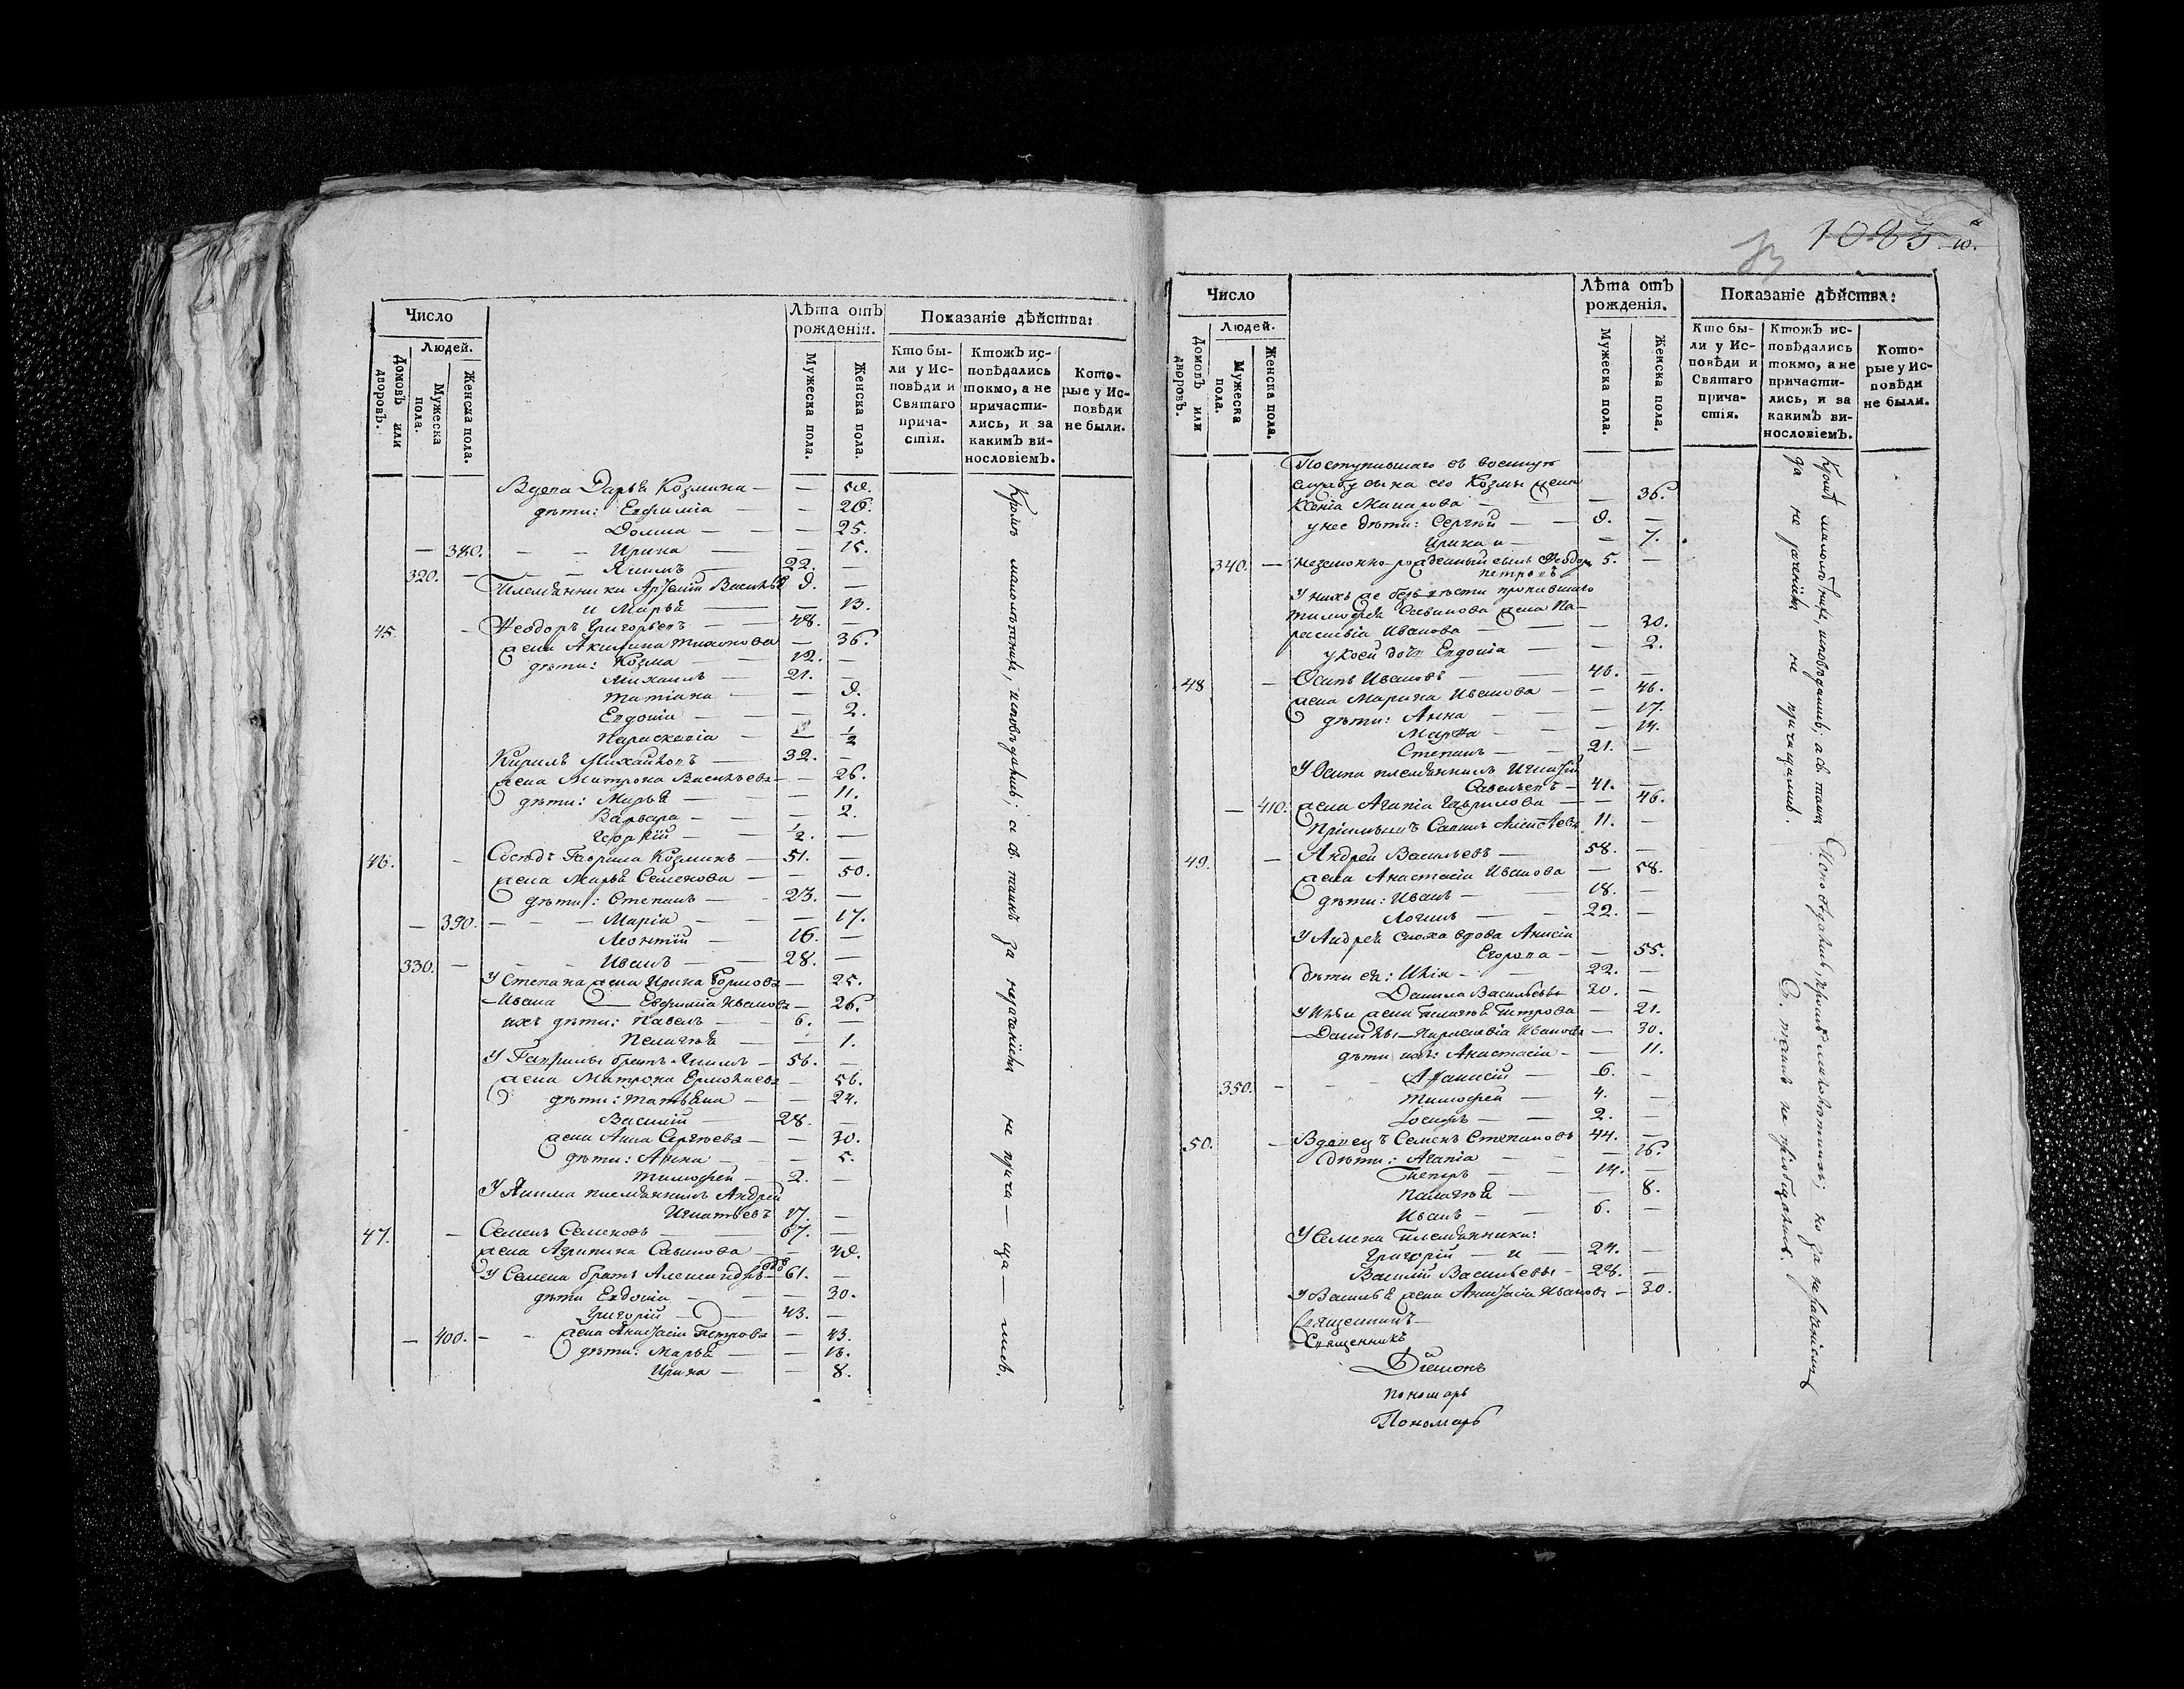 Число
Людей.
Домовъ или дворовъ.
Мужеска пола.
Женска пола.
Лѣта отъ рожденія.
Мужеска пола.
Женска пола.
Показаніе дѣйства:
Кто бы-
ли у Ис-
повѣди и
Святаго
прича-
стія.
Ктожъ ис-
повѣдались
токмо, а не
причасти-
лись, и за
какимъ ви-
нословіемъ.
Кото-
рые у Ис-
повѣди
не были.
Вдова Дарья Козмина —
дѣти: Евфимія — 26.
Домна — 25.
— 380. — Ирина — 15.
320. — Якимъ 22. —
Племянники Васильев
и Марья — 13.
45. Ѳеодоръ Григорьевъ 48. —
жена Акилина Тихонова — 36.
дѣти: Козма 12. —
Михаилъ 21. —
Татіана —
Евдокія — 2.
Параскевія — 1/2
Кирилъ Михайловъ 32. —
жена Матрона Васильева — 26.
дѣти: Марья — 11.
Варвара — 2.
Георгій 1/2. —
46. Сосѣдъ Гаврила Козминъ 51. —
жена Марья Семенова — 50.
дѣти: Степанъ 23. —
— 390. — Марія — 17.
Леонтій 16. —
330. — Иванъ 28. —
У Степана жена Ирина — 25.
— Ивана — Евфимія Иванова — 26.
ихъ дѣти: Павелъ 6. —
Пелагея — 1.
У Гаврилы братъ Якимъ 56. —
жена Матрона Ермолаева — 56.
дѣти: Татьяна — 24.
Василій 28. —
жена Анна Сергѣева — 30.
дѣти: Анна — 5.
Тимофей 2. —
У Якима племянникъ Андрей
Игнатьевъ 17. —
47. Семенъ Семеновъ 67. —
жена Савинова —
У Семена братъ Александръ 61. —
дѣти Евдокія — 30.
Григорій 43. —
— 400. — жена Петрова — 43.
дѣти: Марья — 13.
Ирина — 8.
Кромѣ малолѣтнихъ, исповѣдались; а св. таинъ за нераченіемъ не прича—ща—лись.
1083
Число
Людей.
Домовъ или дворовъ.
Мужеска пола.
Женска пола.
Лѣта отъ рожденія.
Мужеска пола.
Женска пола.
Показаніе дѣйства:
Кто бы-
ли у Ис-
повѣди и
Святаго
прича-
стія.
Ктожъ ис-
повѣдались
токмо, а не
причасти-
лись, и за
какимъ ви-
нословіемъ.
Кото-
рые у Ис-
повѣди
не были.
Поступившаго въ военную
службу сына его Козмы жена
Ксенія Макарова — 36.
у нее дѣти: Сергѣй —
Ирина и — 7.
340. — незаконнорожденный сынъ Ѳеодоръ 5. —
Петровъ
У нихъ же безъ вѣсти пропавшаго
Тимофея Савинова жена Па-
раскевія Иванова — 30.
у коей дочь Евдокія — 2.
48 Осипъ Ивановъ 46. —
жена Марина Иванова — 46.
дѣти: Анна — 17.
Марѳа — 14.
Степанъ 21. —
У Осипа племянникъ
Савельевъ 41. —
— 410. жена Агапія Гаврилова — 46.
11. —
49. Андрей Васильевъ 58. —
жена Анастасія Иванова — 58.
дѣти: Иванъ 18. —
Логинъ 22. —
У Андрея сноха вдова Анисія
Егорова — 55.
дѣти ея: Илія 22. —
Данила Васильевы 30. —
У Ильи жена Пелагея Петрова — 21.
— Данилы — Параскевія Иванова — 30.
дѣти ихъ: Анастасія — 11.
Аѳанасій 6. —
350. — Тимофей 4. —
Іосифъ 2. —
50. Вдовецъ Семенъ Степановъ 44. —
дѣти: Агапія — 16.
Петръ 14. —
Палагея — 8.
Иванъ 6. —
У Семена племянники:
Григорій — и — 24. —
Василій Васильевы 28. —
У Василья жена Иванова — 30.
Священникъ
Священникъ
Діаконъ
Пономарь
Пономарь
Кромѣ малолѣтнихъ, исповѣдались, а св. таинъ
за нераченіемъ не причащались.
Исповѣдались, кромѣ малолѣтнихъ; но за нераченіемъ
св. таинъ не пріобщались.